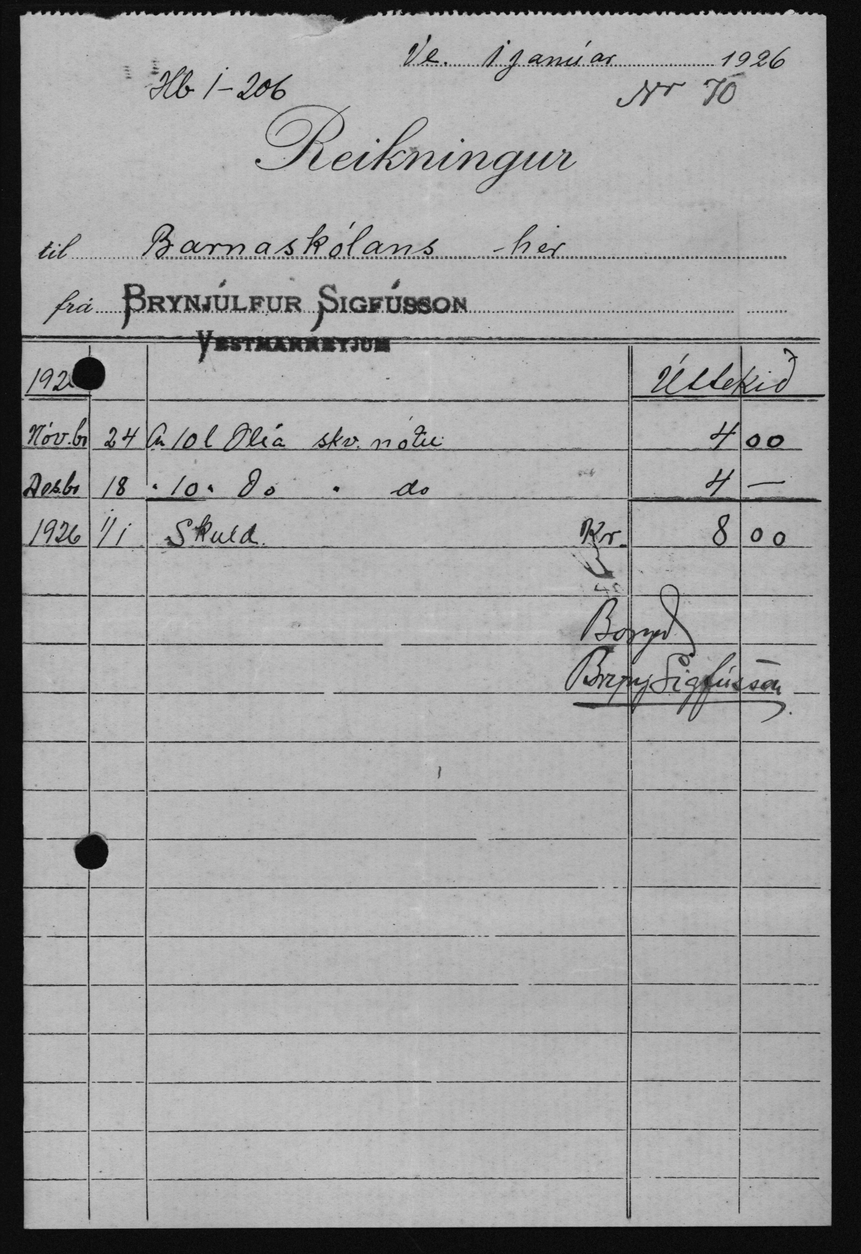 Ve. 1 janúar 1926
Hb 1-206
Nr 70
Reikningur
til Barnaskólans hér
frá BRYNJÚLFUR SIGFÚSSON
VESTMANNEYJUM
192 Úttekið
Nóvbr 24 10 l Olía skv. nótu 4 00
Desbr 18 " 10 " Do " do 4 —
1926 1/1 Skuld. Kr. 8 00
Borgað
Brynj Sigfússon